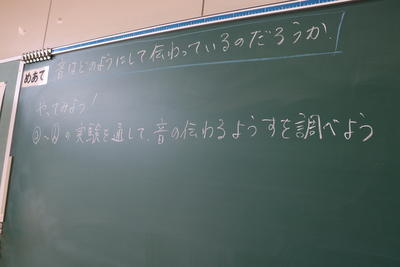 めあて 音はどのようにして伝わっているのだろうか.
やってみよう!
の実験を通して、音の伝わるようすを調べよう